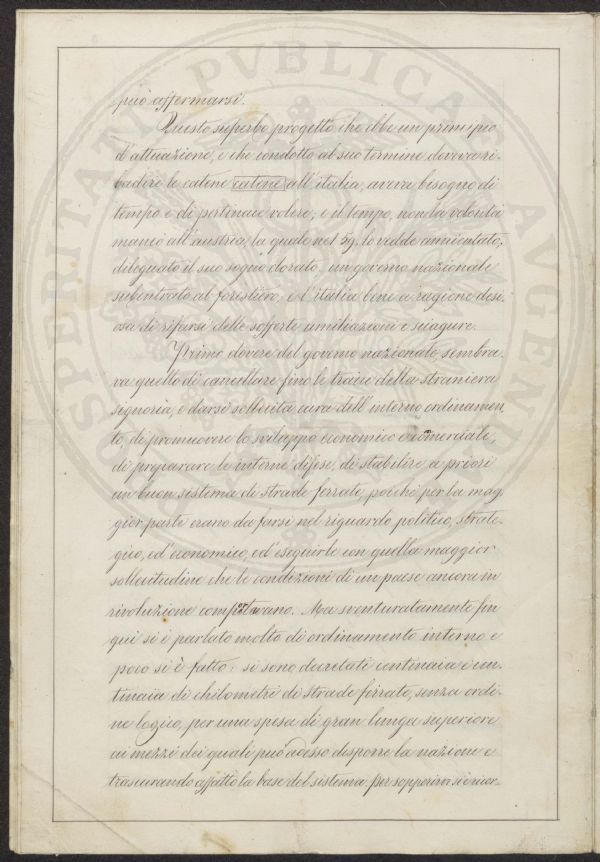 può affermarsi.
Questo superbo progetto che ebbe un principio
d'attuazione, e che condotto al suo termine doveva ri-
badire le catene catene all'italia, aveva bisogno di
tempo e di pertinace volere; e il tempo, non la volontà
mancò all'austria, la quale nel 59. lo vedde annientato,
dileguato il suo sogno dorato, un governo nazionale
subentrato al forestiero, e l'italia bene a ragione desi-
osa di rifarsi delle sofferte umiliazioni e sciagure.
Primo dovere del governo nazionale, sembra-
va quello di cancellare fino le traccie della straniera
signoria, e darsi sollecita cura dell'interno ordinamen
to, di promuovere lo sviluppo economico e comerciale,
di preparare le interne difese, di stabilire a priori
un buon sistema di strade ferrate, poichè per la mag-
gior parte erano da farsi nel riguardo politico, strate-
gico, ed'economico, ed'eseguirle con quella maggior
sollecitudine che le condizioni di un paese ancora in
rivoluzione comportavano. Ma sventuratamente fin
qui si è parlato molto di ordinamento interno e
poco si è fatto: si sono decretati centinaia e cen-
tinaia di chilometri di strade ferrate, senza ordi-
ne logico, per una spesa di gran lunga superiore
ai mezzi dei quali può adesso disporre la nazione e
trascurando affatto la base del sistema. Per sopperirvi si è ricor-
PROSPERITATI PVBLICAE AVGENDAE